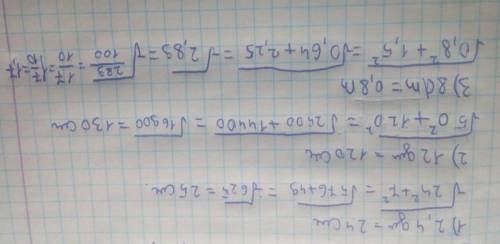 1) 2,4 дм = 24 см
√24² + 7² = √576+49 = √625 = 25 см.
2) 12 дм = 120 см
√50² + 120² = √2500 + 14400 = √16900 = 130 см
3) 8 дм = 0,8 м
√0,8² + 1,5² = √0,64 + 2,25 = √2,89 = √289/100 = 17/10 = 1 7/10 = 1,7